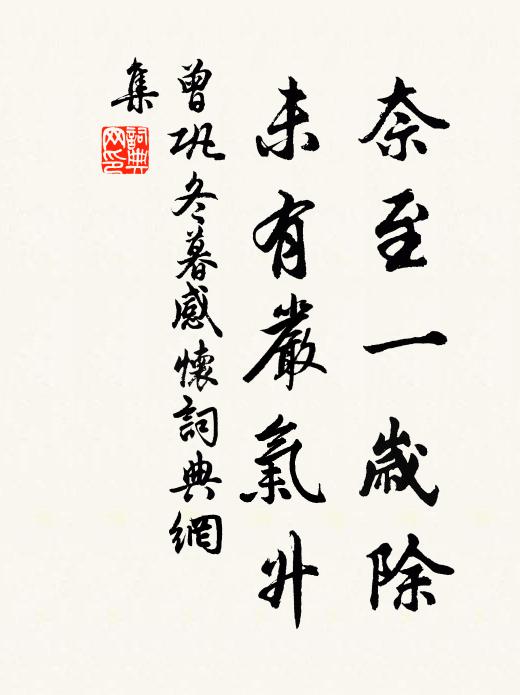 奈至一歲除
未有嚴氣升
曾巩冬暮感懷詞典網
集
詞典
网印